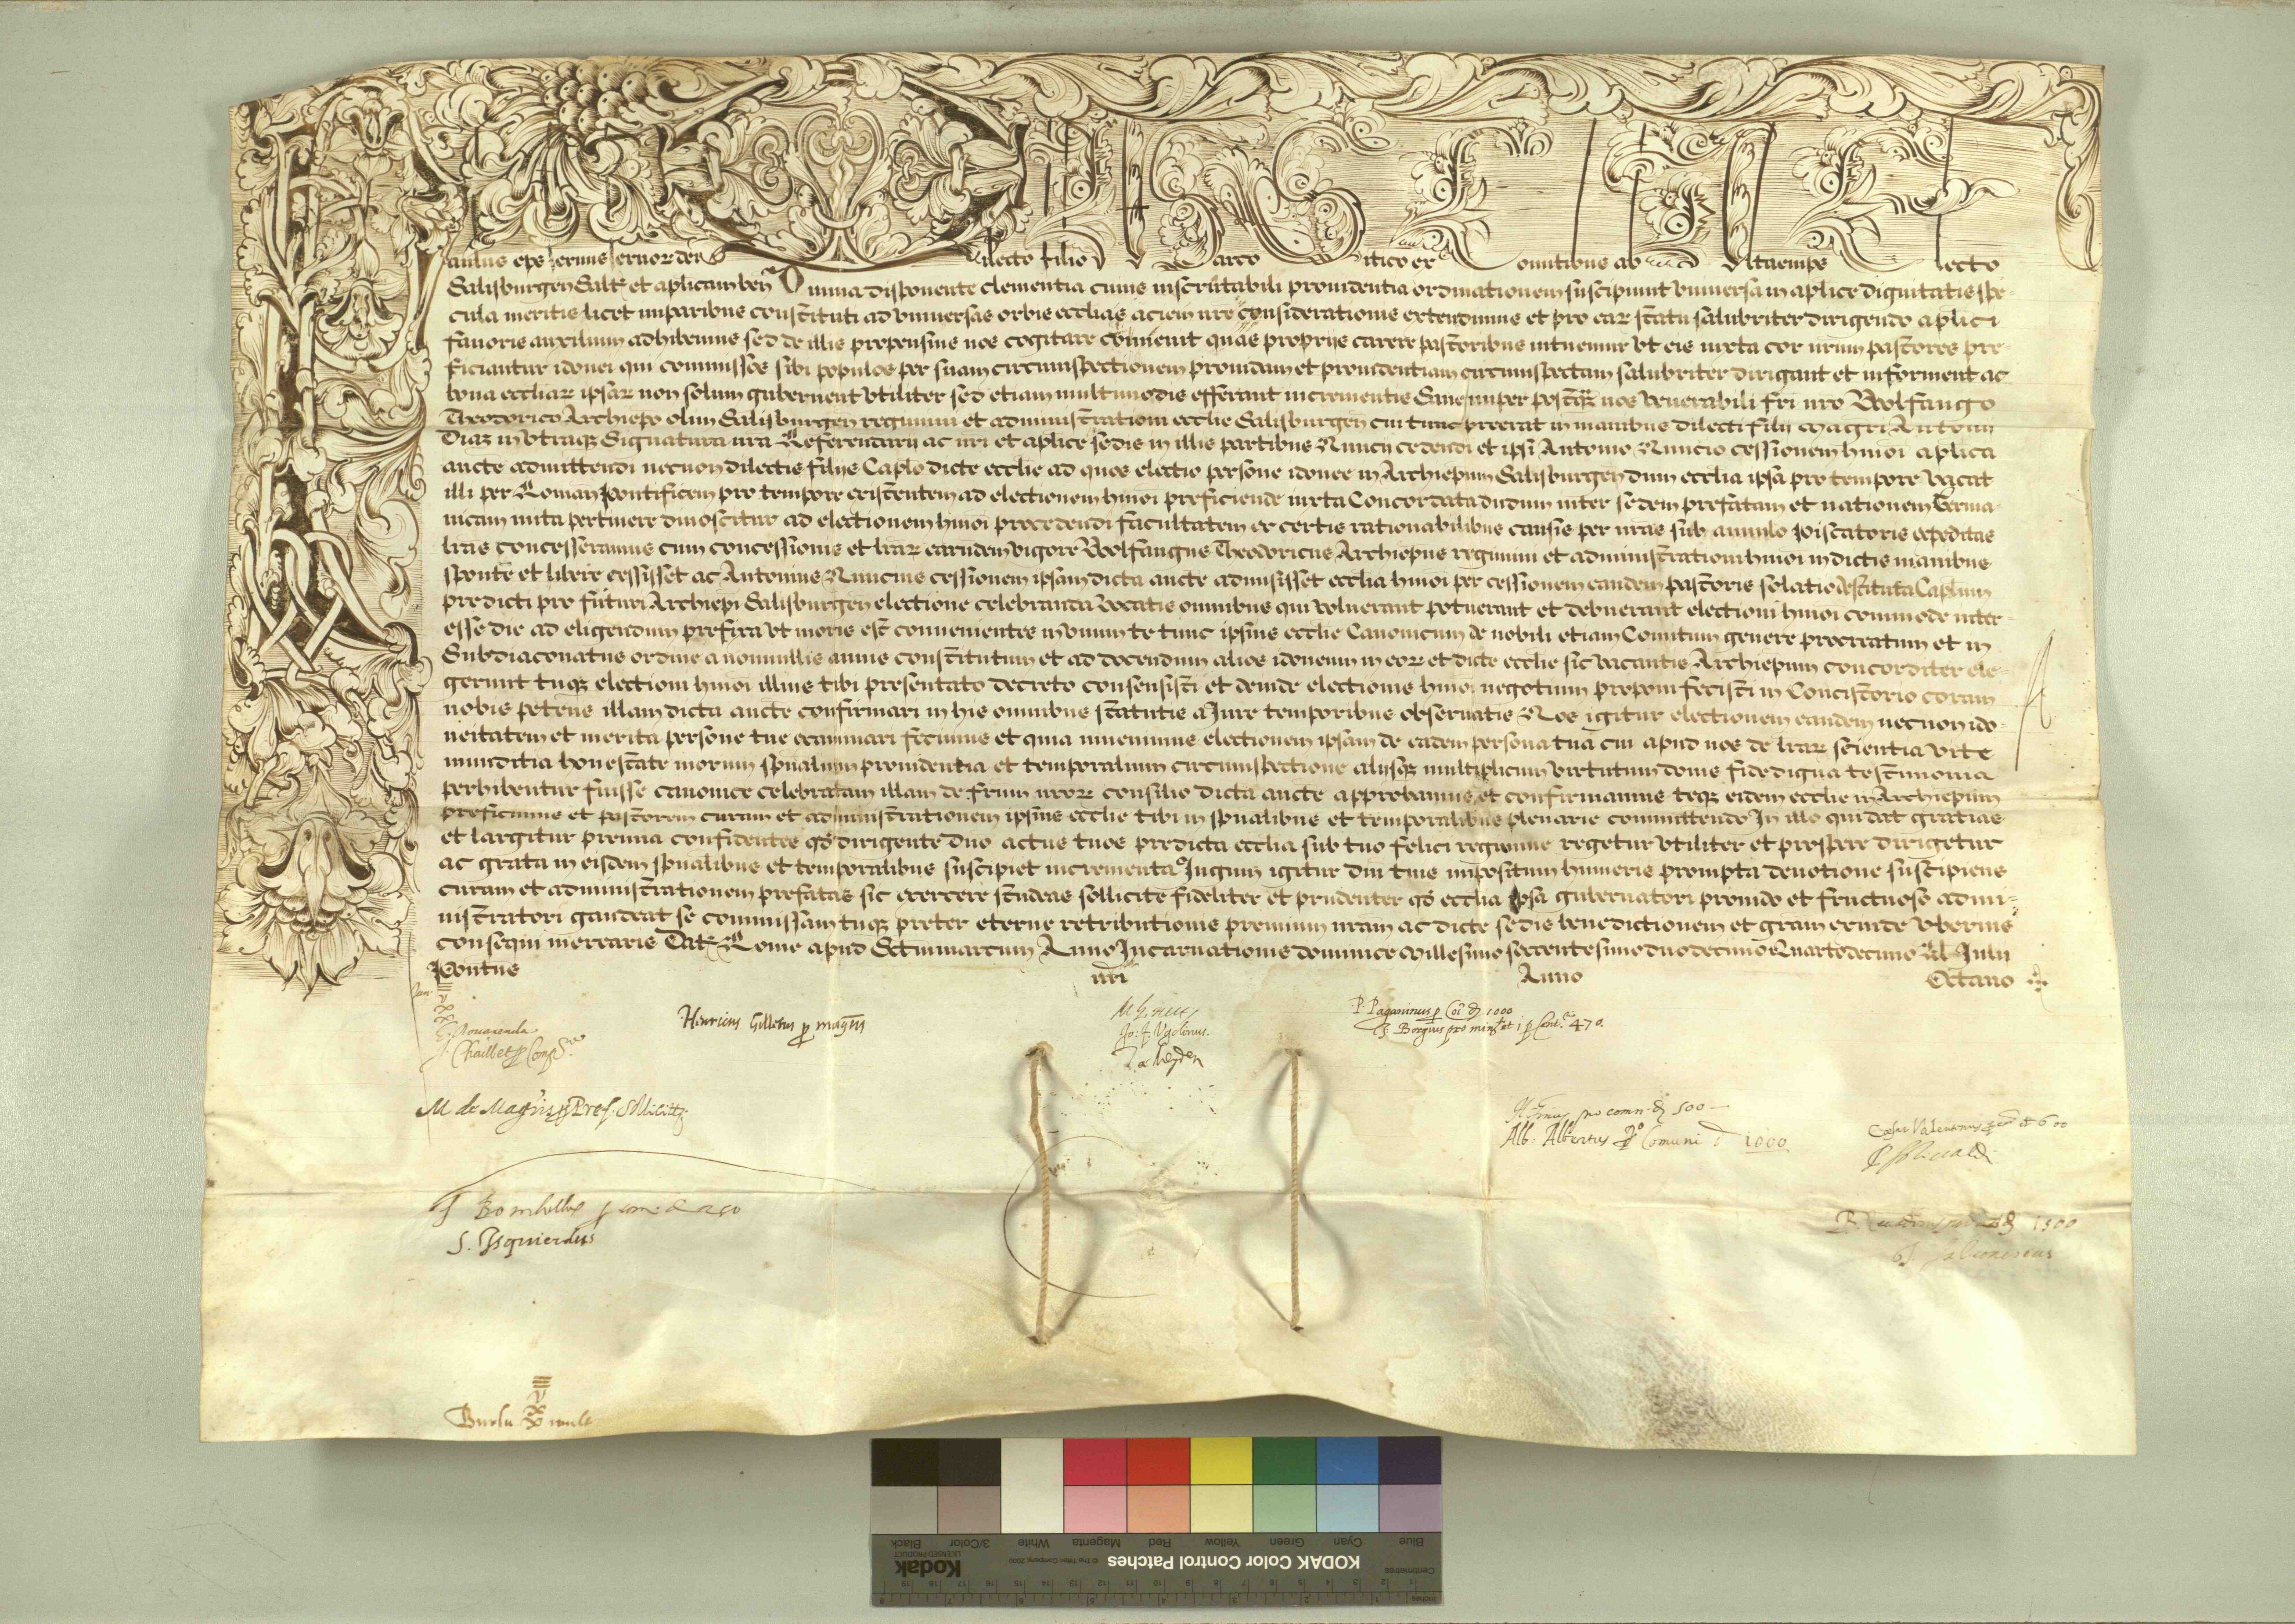 Paulus eps servus servor dei Dilecto filio Marco Sitico ex Comitibus ab Altaemps Electo
Salisburgen Saltem et aplicam ben Divina disponente clementia cuius inscrutabili providentia ordinationem suscipiunt universa in aplice dignitatis spe-
cula meritis licet imparibus constituti ad universas orbis ecclias aciem nre considerationis extendimus et pro ear statu salubriter dirigendo aplici
favoris auxilium adhibemus sed de illis propensius nos cogitare convenit quas proprijs carere pastoribus intuemur ut eis iuxta cor nrum pastores pre-
ficiantur idonei qui commissos sibi populos per suam circumspectionem providam et providentiam circumspectam salubriter dirigant et informent ac
bona eccliar ipsar non solum gubernent utiliter sed etiam multimodis efferant incrementis Sane nuper postqz nos venerabili fri nro Wolfango
Theodorico Archiepo olim Salisburgen regimini et administrationi ecclie Salisburgen cui tunc preerat in manibus dilecti filij magri Antonij
Diaz in utraqz Signatura nra Referendarij ac nri et aplice sedis in illis partibus Nuncij cedendi et ipsi Antonio Nuncio cessionem hmoi aplica
aucte admittendi necnon dilectis filijs Caplo dicte ecclie ad quos electio persone idonee in Archiepum Salisburgen dum ecclia ipsa pro tempore vacat
illi per Roman Pontificem pro tempore existentem ad electionem hmoi preficiende iuxta Concordata dudum inter sedem prefatam et nationem Germa-
nicam inita pertinere dinoscitur ad electionem hmoi procedendi facultatem ex certis rationabilibus causis per nras sub annulo Piscatoris expeditas
lras concesseramus cum concessionis et lrar earundem vigore Wolfangus Theodoricus Archiepus regimini et administrationi hmoi in dictis manibus
sponte et libere cessisset ac Antonius Nuncius cessionem ipsam dicta aucte admisisset ecclia hmoi per cessionem eandem pastoris solatio destituta Caplum
predicti pro futuri Archiepi Salisburgen electione celebranda vocatis omnibus qui voluerant potuerant et debuerant electioni hmoi commode inter-
esse die ad eligendum prefixa ut moris est convenientes in unum te tunc ipsius ecclie Canonicum de nobili etiam Comitum genere procreatum et in
Subdiaconatus ordine a nonnullis annis constitutum et ad docendum alios idoneum in eor et dicte ecclie sic vacantis Archiepum concorditer ele-
gerunt tuqz electioni hmoi illius tibi presentato decreto consensisti et deinde electionis hmoi negotium proponi fecisti in Concistorio coram
nobis petens illam dicta aucte confirmari in his omnibus statutis a Jure temporibus observatis Nos igitur electionem eandem necnon ido-
neitatem et merita persone tue examinari fecimus et quia invenimus electionem ipsam de eadem persona tua cui apud nos de lrar scientia vite
munditia honestate morum spualium providentia et temporalium circumspectione alijsqz multiplicium virtutum donis fidedigna testimonia
perhibentur fuisse canonice celebratam illam de frum nror consilio dicta aucte approbamus et confirmamus teqz eidem ecclie in Archiepum
preficimus et pastorem curam et administrationem ipsius ecclie tibi in spualibus et temporalibus plenarie committendo In illo qui dat gratias
et largitur premia confidentes qd dirigente Dno actus tuos predicta ecclia sub tuo felici regimine regetur utiliter et prospere dirigetur
ac grata in eisdem spualibus et temporalibus suscipiet incrementa Jugum igitur Dni tuis impositum humeris prompta devotione suscipiens
curam et administrationem prefatas sic exercere studeas sollicite fideliter et prudenter qd ecclia ipsa gubernatori provido et fructuoso admi-
nistratori gaudeat se commissam tuqz preter eterne retributionis premium nram ac dicte sedis benedictionem et gram exinde uberius
consequi merearis Dat Rome apud Sctummarcum Anno Incarnationis dominice Millesimo sexcentesimo duodecimo Quartodecimo Kl Julij
Pontus nri Anno Octavo
Henricus Gilletus p magris
P. Paganinus p Coi d 1000
Jo: f. Ugolinus.
S. Borgius pro minri et i p Cent. 470.
J. Chaillet p Comp
M de Magris Pres. Sollicitt
pro comn. d 500
Alb: Albertus p Comuni d 1000
J Bombellus p com. d 250
S. Isquierdus
1500
KODAK Color Control Patches
Kodak
LICENSED PRODUCT
© The Tiffen Company, 2000
Blue Cyan Green Yellow Red Magenta White 3/Color Black
Centimetres
Inches